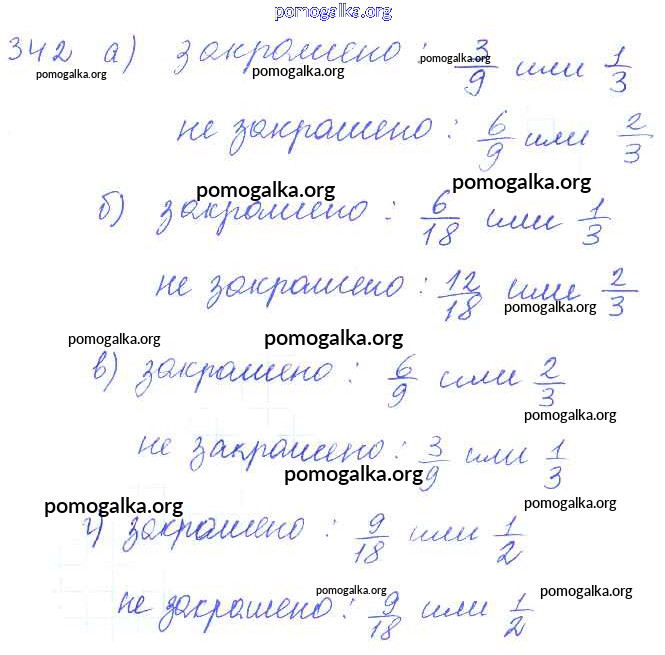 pomogalka.org
342 а) закрашено : 3/9 или 1/3
pomogalka.org pomogalka.org pomogalka.org
не закрашено : 6/9 или 2/3
pomogalka.org pomogalka.org
б) закрашено : 6/18 или 1/3
не закрашено : 12/18 или 2/3
pomogalka.org
pomogalka.org pomogalka.org
в) закрашено : 6/9 или 2/3
pomogalka.org
не закрашено : 3/9 или 1/3
pomogalka.org
pomogalka.org pomogalka.org
г) закрашено : 9/18 или 1/2
pomogalka.org pomogalka.org
не закрашено : 9/18 или 1/2